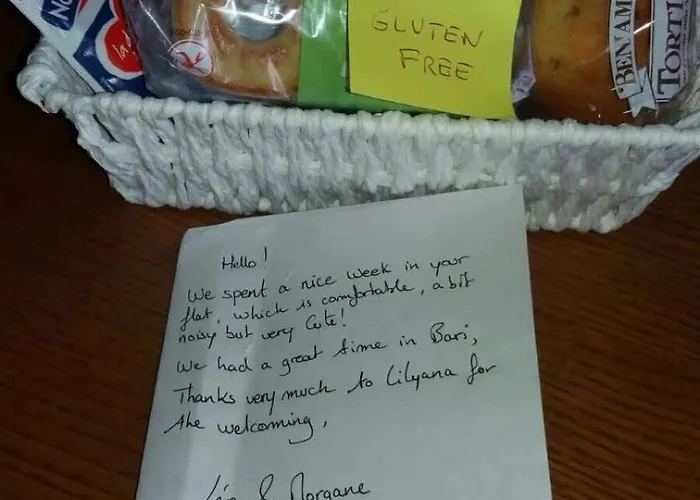 GLUTEN
FREE
BEN AM
TORTI
No
Hello!
We spent a nice week in your
flat, which is comfortable, a bit
noisy but very Cute!
We had a great time in Bari,
Thanks very much to Lilyana for
the welcomming,
& Morgane